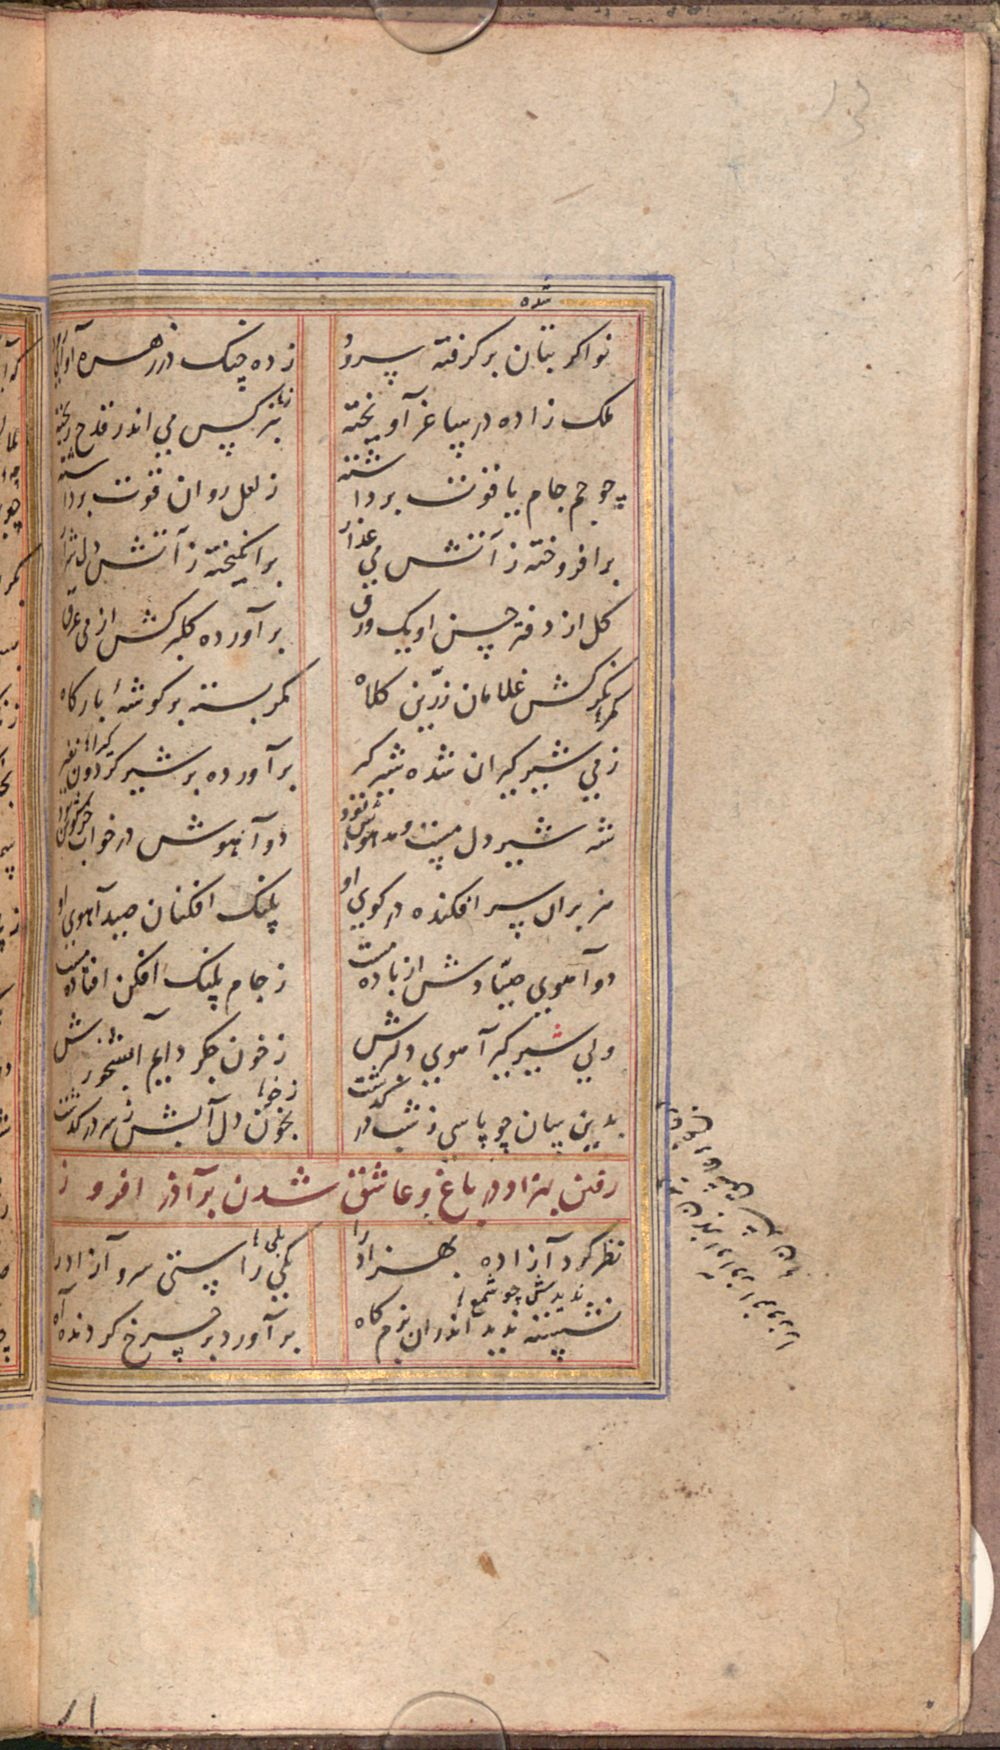 شده
نواکر بتان برکرفته سرود
زده چنک در زهره آوای
ملک زاده در ساغر آویخته
ز نرکس می اندر قدح ریخته
چو جم جام یاقوت برداشته
ز لعل روان قوت برداشته
برافروخته ز آتش می عذار
برانکیخته ز آتش دل شرار
کل از دفتر حسن او یک ورق
برآورده کلبرکش از می عرق
کمرکش غلامان زرّین کلاه
کمر بسته بر کوشهٔ بارکاه
ز می شیرکیران شده شیرکر
برآورده بر شیر کردون نفیر
شه شیردل مست و مدهوش
دو آهوش در خواب خرکوش
هزبران سر افکنده در کوی او
پلنک افکنان صید آهوی او
دو آهوی صیّادش از باده مست
ز جام پلنک افکن افتاده مست
ولی شیرکیر آهوی دلکش
ز خون جکر دایم آبشخورش
بدین سان چو پاسی ز شب در کذشت
بخون دل آبش ز سر در کذشت
رفتن بهزاد در باغ و عاشق شدن بر آذر افروز
نظر کرد آزاده بهزاد را
یکی راستی سرو آزاد را
ندیدش چو شمع
نشسته ندید اندران بزم کاه
برآورد بر چرخ کردنده آه